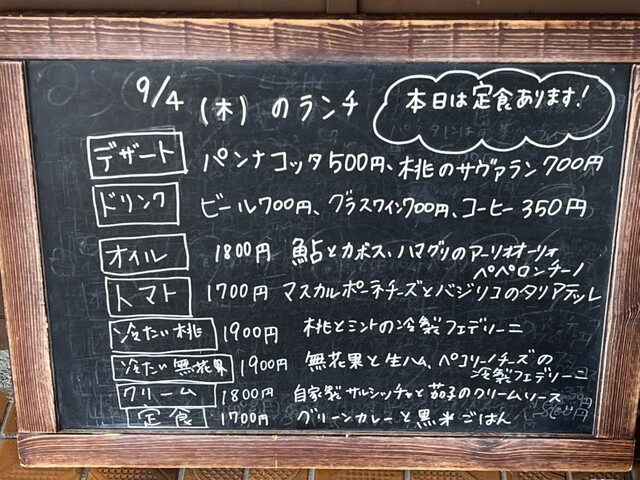 9/4 (木) のランチ
本日は定食あります!
デザート パンナコッタ500円、桃のサヴァラン700円
ドリンク ビール700円、グラスワイン700円、コーヒー350円
オイル 1800円 鮎とカボス、ハマグリのアーリオオーリォ
ペペロンチーノ
トマト 1700円 マスカルポーネチーズとバジリコのタリアテッレ
冷たい桃 1900円 桃とミントの冷製フェデリーニ
冷たい無花果 1900円 無花果と生ハム、ペコリーノチーズの
冷製フェデリーニ
クリーム 1800円 自家製サルシッチャと茄子のクリームソース
定食 1700円 グリーンカレーと黒米ごはん